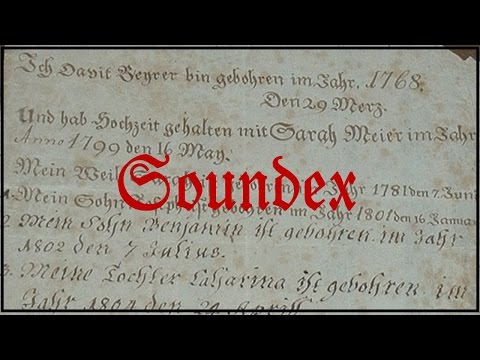 Ich Davit Beyrer bin gebohren im Jahr. 1768.
Den 29 Merz.
Und hab Hochzeit gehalten mit Sarah Meier im Jahr
Anno 1799 den 16 May.
Mein Weib Jahr 1781 den 7. Juni
Soundex
1. Mein Sohn gebohren im Jahr 1801 den 16 Januar
2. Mein Sohn Benjamin ist gebohren im Jahr
1802 den 7 Julius.
3. Meine Tochter Catharina ist gebohren im
Jahr 1804 den